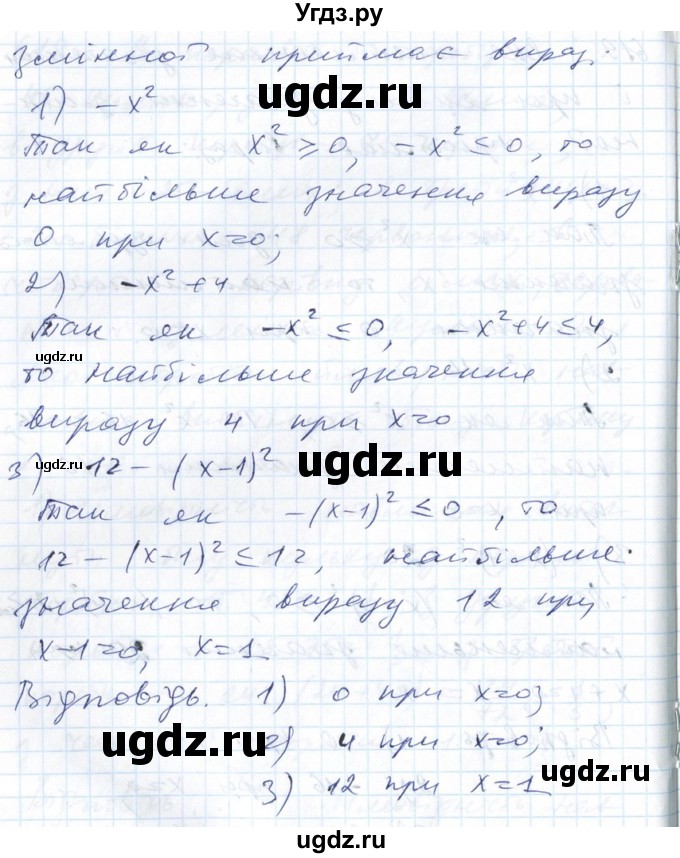 Угдз.ру
змінної приймає вираз.
1) -x²
Так як x² ≥ 0, -x² ≤ 0, то
найбільше значення виразу
0 при x=0;
2) -x²+4
Так як -x² ≤ 0, -x²+4 ≤ 4,
то найбільше значення
виразу 4 при x=0
3) 12 - (x-1)²
Так як -(x-1)² ≤ 0, то
12 - (x-1)² ≤ 12, найбільше
значення виразу 12 при
x-1=0, x=1
Відповідь. 1) 0 при x=0;
2) 4 при x=0;
3) 12 при x=1
ugdz.ru
ugdz.ru
ugdz.ru
ugdz.ru
ugdz.ru
ugdz.ru
ugdz.ru
ugdz.ru
ugdz.ru